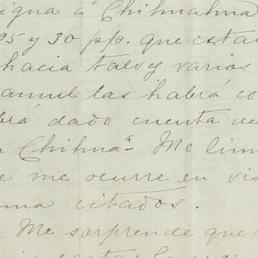 igna á Chihuahua
95 y 30 pp. que esta
hacia tal vez varios
anuel las habrá co
brá dado cuenta de
Chihuaª. Me lim
e me ocurre en vis
ma citados.
Me sorprende que